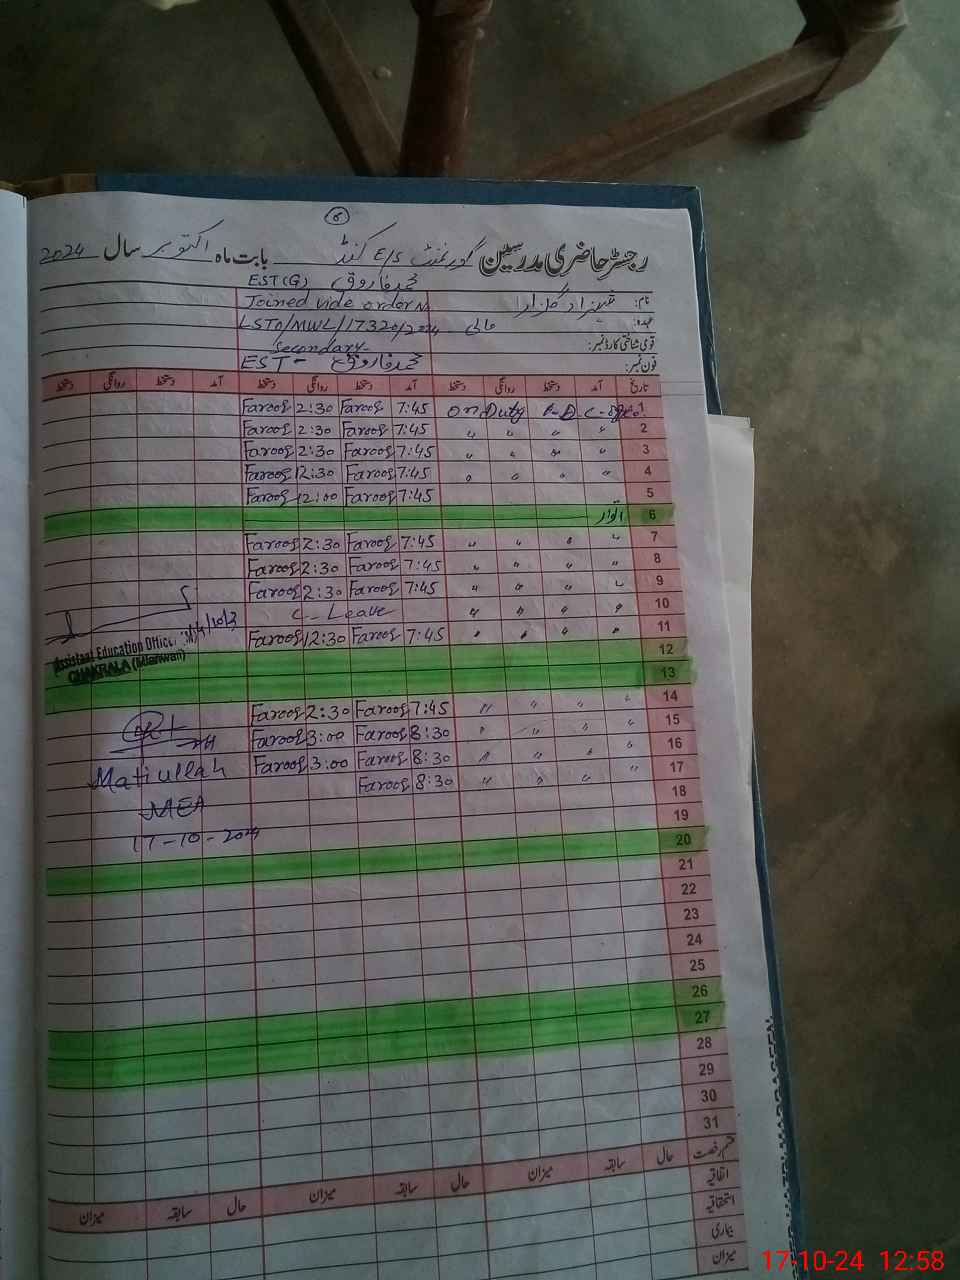 رجسٹر حاضری مدرسین گورنمنٹ E/S کنڈ بابت ماہ اکتوبر سال 2024
EST(G) محمد فاروق
نام: Joined vide order N
عہدہ: مالی LSTO/MWL/17320/2024
قومی شناختی کارڈ نمبر: Secondary
فون نمبر: EST - محمد فاروق
تاریخ آمد دستخط روانگی دستخط آمد دستخط روانگی دستخط آمد دستخط روانگی دستخط
1 on Duty 7:45 Farooq 2:30 Farooq
2 " " " " 7:45 Farooq 2:30 Farooq
3 " " " " 7:45 Farooq 2:30 Farooq
4 " " " " 7:45 Farooq 12:30 Farooq
5 7:45 Farooq 12:00 Farooq
6 اتوار
7 " " " " 7:45 Farooq 2:30 Farooq
8 " " " " 7:45 Farooq 2:30 Farooq
9 " " " " 7:45 Farooq 2:30 Farooq
10 " " " " Leave
11 " " " " 7:45 Farooq 12:30 Farooq
Assistant Education Officer
CHAKRALA (Mianwali)
12
13
14 " " " " 7:45 Farooq 2:30 Farooq
15 " " " " 8:30 Farooq 3:00 Farooq
16 " " " " 8:30 Farooq 3:00 Farooq
17 " " " " 8:30 Farooq
Matiullah
MEA
17-10-2024
18
19
20
21
22
23
24
25
26
27
28
29
30
31
قسم رخصت حال سابقہ میزان حال سابقہ میزان حال سابقہ میزان
اتفاقیہ
استحقاقیہ
بیماری
میزان
17-10-24 12:58